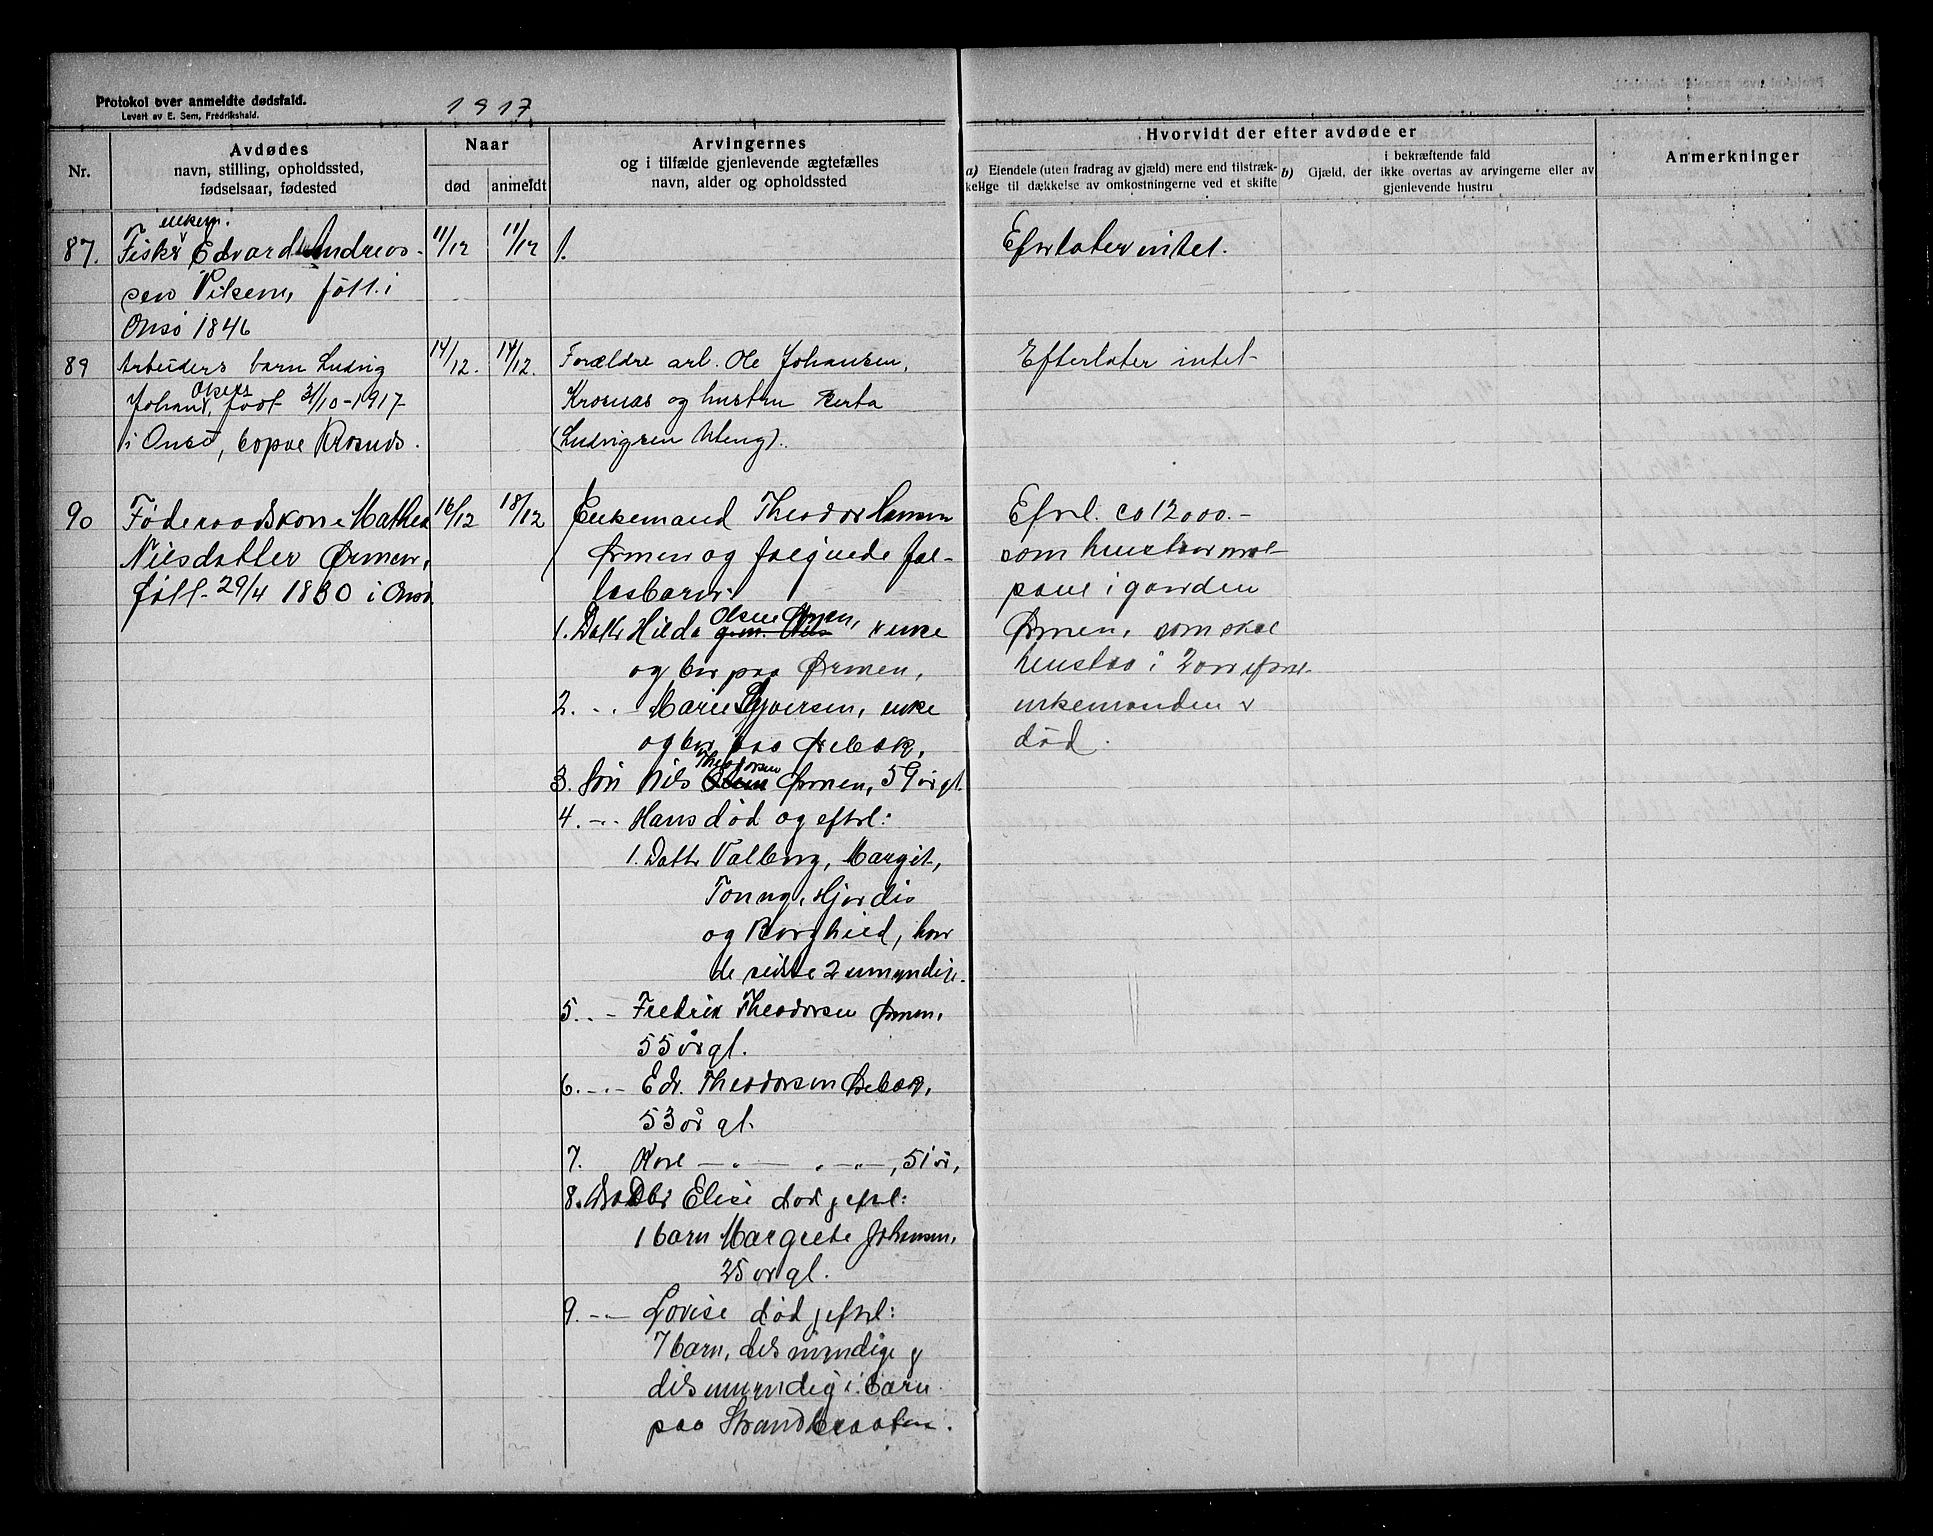 Protokol over anmeldte dødsfald.
Levert av E. Sem, Fredrikshald.
1917
Nr.
Avdødes
navn, stilling, opholdssted,
fødselsaar, fødested
Naar
død
anmeldt
Arvingernes
og i tilfælde gjenlevende ægtefælles
navn, alder og opholdssted
Hvorvidt der efter avdøde er
a) Eiendele (uten fradrag av gjæld) mere end tilstræk-
kelige til dækkelse av omkostningerne ved et skifte
b) Gjæld, der
i bekræftende fald
ikke overtas av arvingerne eller av
gjenlevende hustru
Anmerkninger
enkem.
87. Fisker Edvard Andreas- 11/12 11/12 1. Efterlater intet.
sen Vilsem, født i
Onsø 1846
89 Arbeiders barn Ludvig 14/12. 14/12. Forældre arb. Ole Johansen, Efterlater intet-
Johan, født 31/10-1917 Krosnæs og hustru Berta
i Onsø, bopæl Krosnæs. (Ludvigsen Uteng).
90 Føderaadskone Mathea 16/12 18/12 Enkemand Theodor Hansen Efterl. ca 12000.-
Nilsdatter Ørmen, Ørmen og følgende fæl- som henstaar mot
født 29/4 1830 i Onsø. lesbarn: pant i gaarden
Olsen Ørmen,
1. Datter Hilda gem. Nils enke Ørmen, som skal
og bor paa Ørmen, henstaa i 2 aar efter
2. -"- Marie Syversen, enke enkemanden er
og bor paa Ørebæk, død.
Theodorsen
3. Søn Nils Ørmen, 59 aar gl.
4. -"- Hans død og efterl:
1. Datter Valborg, Margit,
Tonny, Hjørdis
og Borghild, hvor
de sidste 2 umyndige.
5. -"- Fredrik Theodorsen Ørmen,
55 aar gl.
6. -"- Edv. Theodorsen Ørebæk,
53 år gl.
7. Karl -"- -"-, 51 år,
8. Datter Elise død og efterl:
1 barn Margrete Johansen,
25 aar gl.
9. -"- Lovise død og efterl:
7 barn, dels myndige og
dels umyndige barn
paa Strandbraaten.